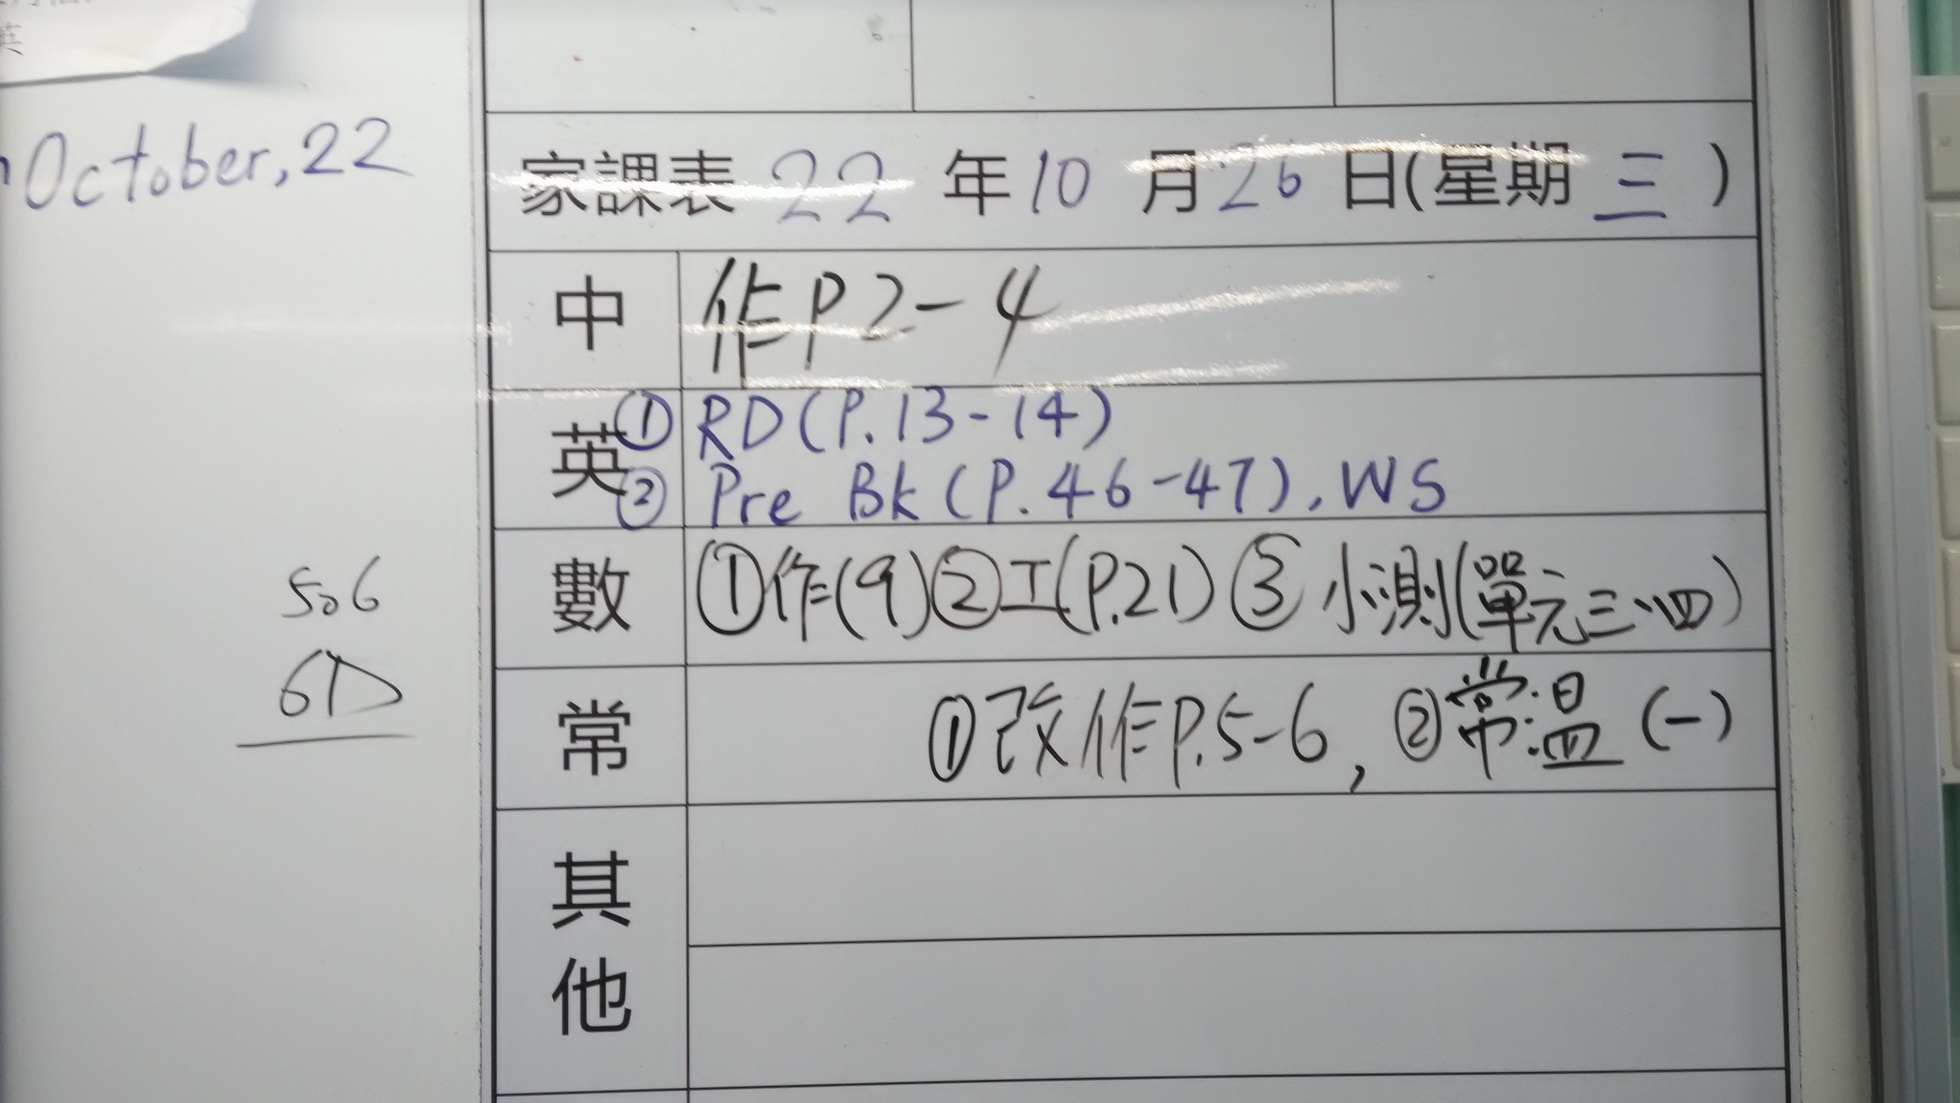 英
October,22
家課表 22 年 10 月 26 日(星期 三 )
中 作P2-4
英 ① RD(P.13-14)
② Pre Bk (P.46-47), WS
數 ①作(9)②工(P.21)③小測(單元三、四)
常 ①改作P.5-6, ②常溫(一)
其他
506
6D